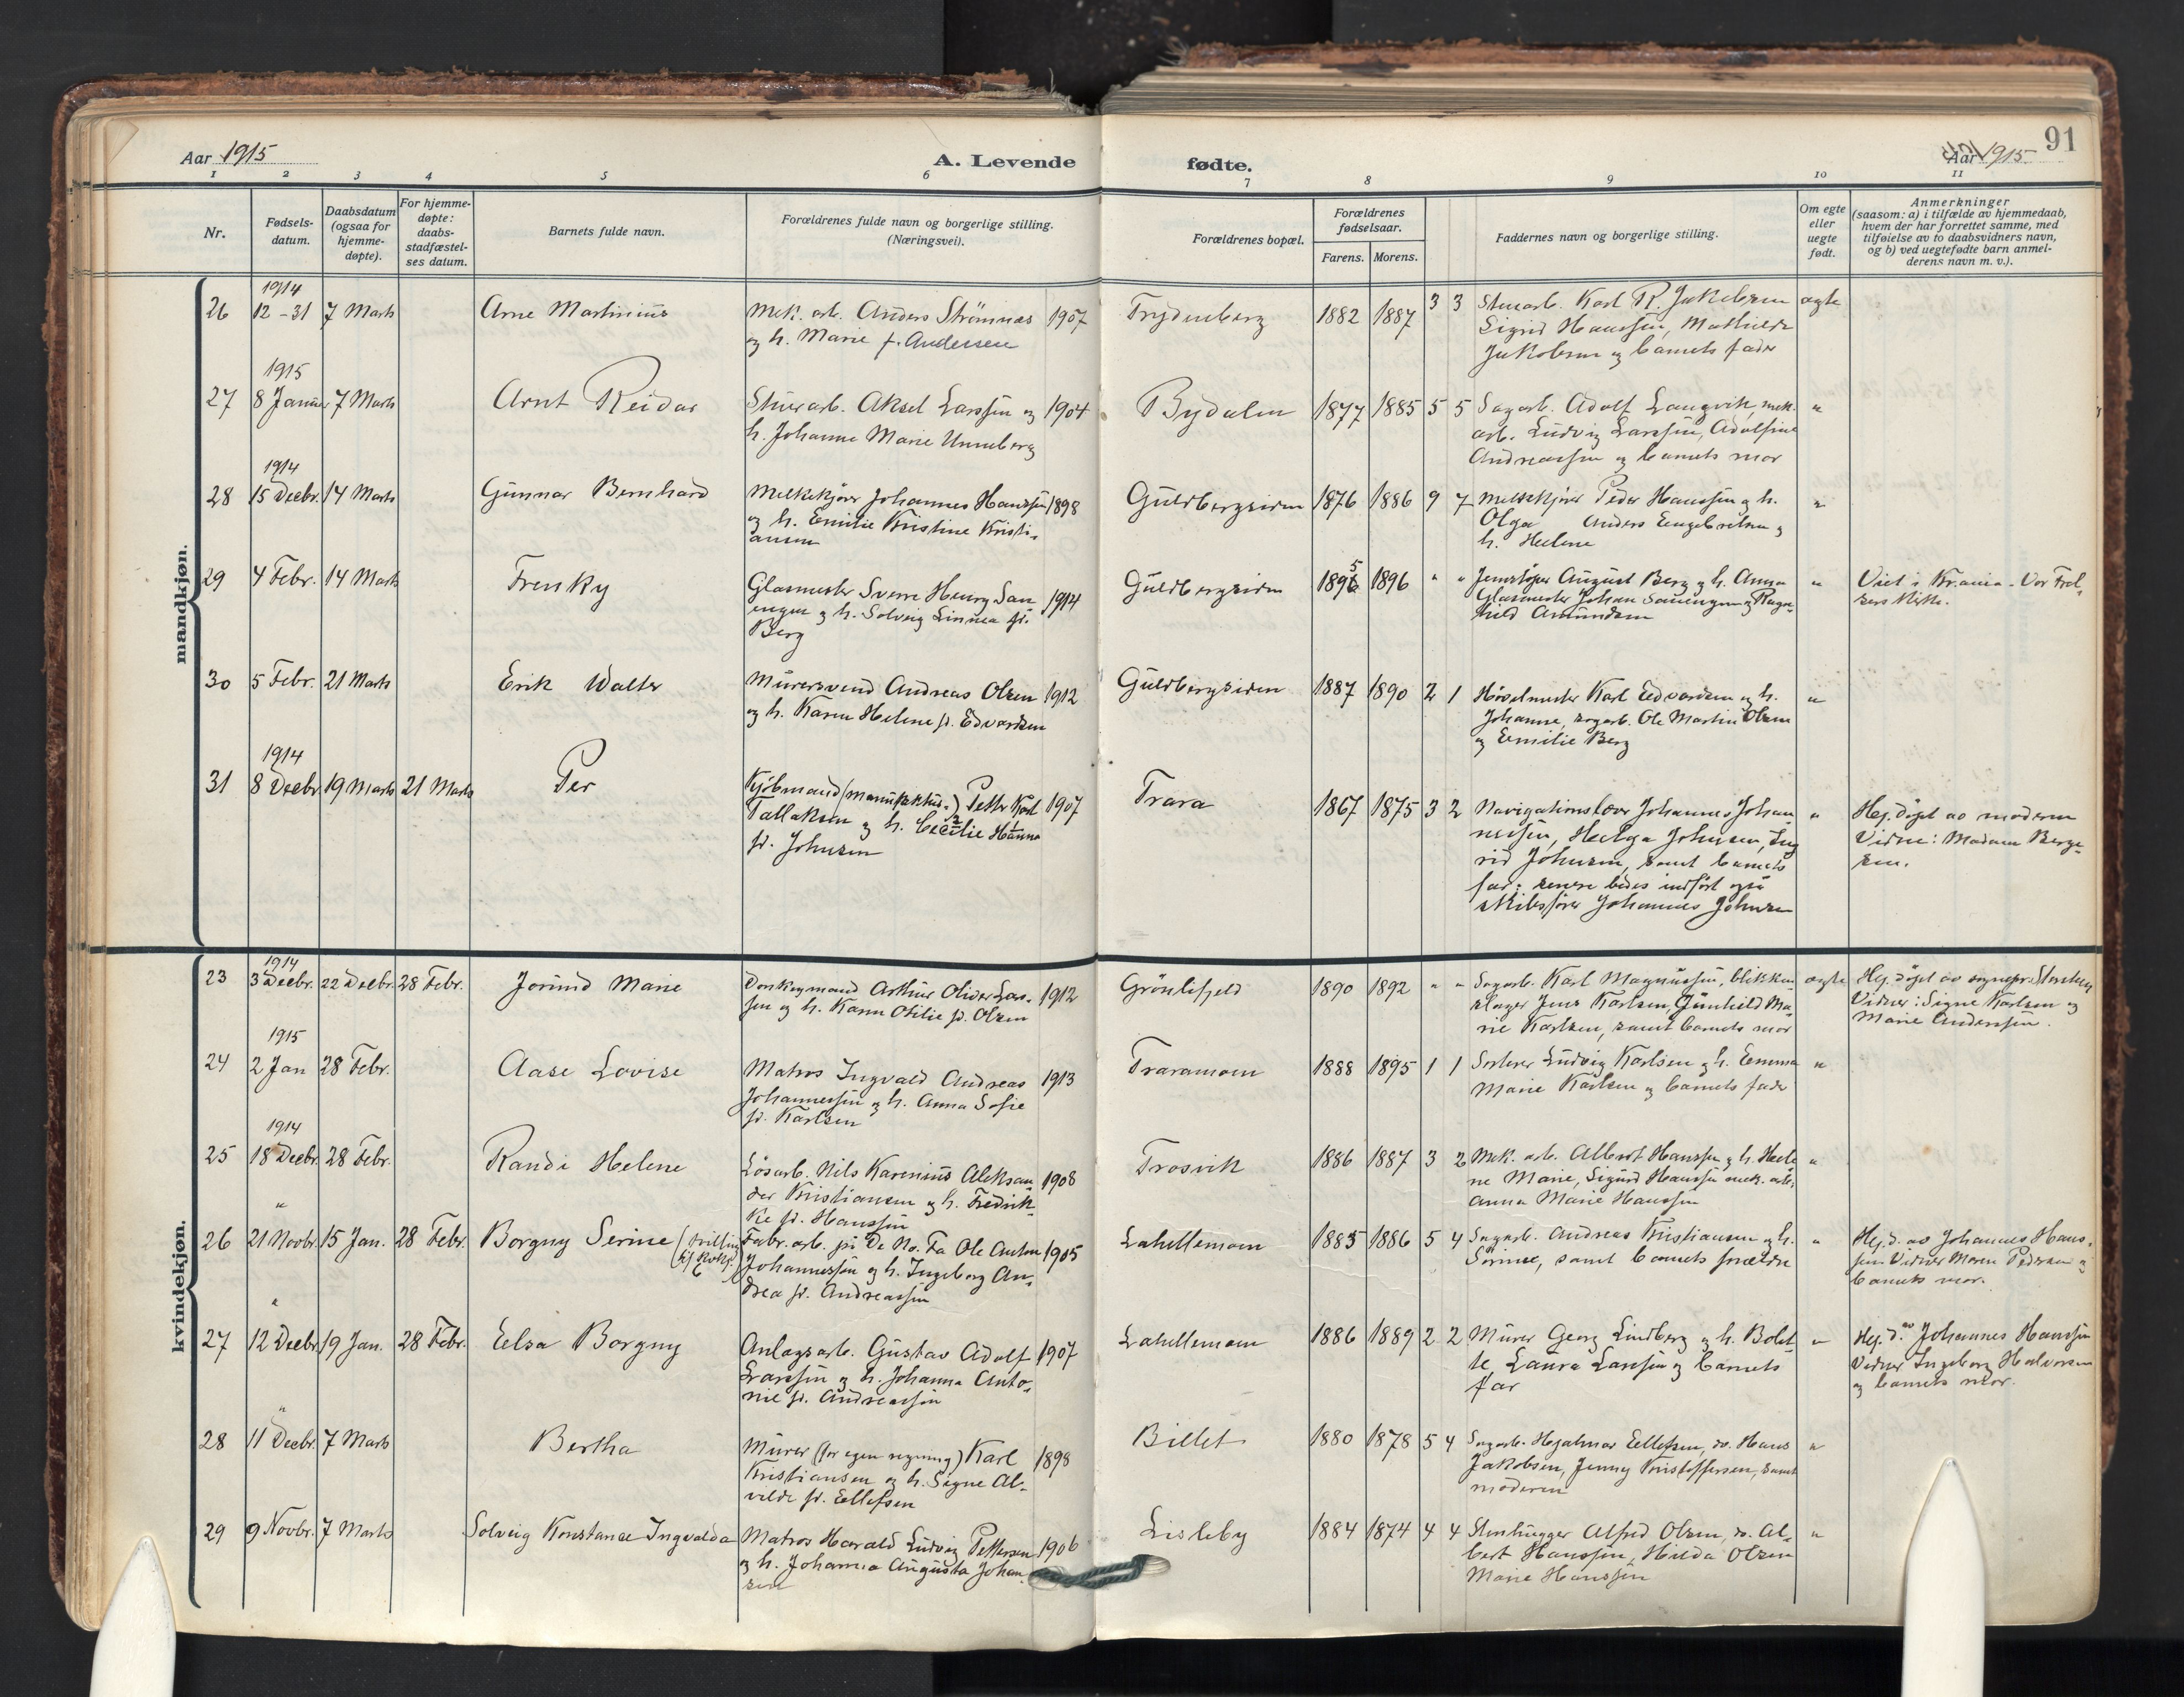 Aar 1915
A. Levende
fødte.
Aar 1915
91
1 2 3 4 5 6 7 8 9 10 11
Nr.
Fødsels-
datum.
Daabsdatum
(ogsaa for
hjemme-
døpte).
For hjemme-
døpte:
daabs-
stadfæstel-
ses datum.
Barnets fulde navn.
Forældrenes fulde navn og borgerlige stilling.
(Næringsvei).
Forældrenes bopæl.
Forældrenes
fødselsaar.
Farens. Morens.
Faddernes navn og borgerlige stilling.
Om egte
eller
uegte
født.
Anmerkninger
(saasom: a) i tilfælde av hjemmedaab,
hvem der har forrettet samme, med
tilføielse av to daabsvidners navn,
og b) ved uegtefødte barn anmel-
derens navn m. v.).
mandkjøn.
1914
26 12-31 7 Marts Arne Martinius
Mek. arb. Anders Strømnæs 1907
og h. Marie f. Andersen
1882 1887 3 3
Stenarb. Karl R. Jakobsen
Sigrid Hanssen, Mathilde
Jakobsen og barnets fader
egte
1915
27 8 Januar 7 Marts Arnt Reidar
Stuerarb. Aksel Larssen og 1904
h. Johanne Marie Unneberg
Bydalen 1877 1885 5 5
Sagarb. Adolf Langvik, mek.
arb. Ludvig Larssen, Adolfine
Andreassen og barnets mor
"
1914
28 15 Decbr. 14 Marts Gunnar Bernhard
Melkekjører Johannes Hanssen 1898
og h. Emilie Kristine Kristi-
ansen
Guldbergsiden 1876 1886 9 7
Melkekjører Peder Hanssen og h.
Olga Anders Engebretsen og
h. Helene
"
29 4 Febr. 14 Marts Frenky
Glasmester Sverre Henry San
engen og h. Solveig Linnea fd. 1914
Berg
Guldbergsiden 1896 5 1896 " "
Jernstøper August Berg og h. Anna
Glasmester Johan Sanengen og Ragn-
hild Amundsen
"
Viet i Kr.ania. Vor Frel-
sers Kirke.
30 5 Febr. 21 Marts Erik Walter
Murersvend Andreas Olsen 1912
og h. Karen Helene fd. Edvardsen
Guldbergsiden 1887 1890 2 1
Høvelmester Karl Edvardsen og h.
Johanne, sagarb. Ole Martin Olsen
og Emilie Berg
"
1914
31 8 Decbr 19 Marts 21 Marts Per
Kjøbmand (manufaktur-) Petter Karl 1907
Tallaksen og h. Cecilie Hanna
fd. Johnsen
Trara 1867 1875 3 2
Navigationslærer Johannes Johan
nessen, Helga Johnsen, Ing
rid Johnsen, samt barnets
far; senere bedes indført også
skibsfører Johannes Johnsen
"
Hj. døpt av moderen
Vidne: Madam Berge-
sen.
kvindekjøn.
1914
23 3 Decbr. 22 Decbr. 28 Febr. Jorund Marie
Donkeymand Arthur Oliver Lars- 1912
sen og h. Karen Otilie fd. Olsen
Grönlifjeld 1890 1892 " "
Sagarb. Karl Magnussen, blikken
slager Jens Karlsen, Gunhild Ma-
rie Karlsen, samt barnets mor
egte
Hj. døpt av sognepr.
Vidner: Signe Karlsen og
Marie Anderssen.
1915
24 2 Jan 28 Febr. Aase Lovise
Matros Ingvald Andreas 1913
Johannessen og h. Anna Sofie
fd. Karlsen
Traramoen 1888 1895 1 1
Sorterer Ludvig Karlsen og h. Emma
Marie Karlsen og barnets fader
"
1914
25 18 Decbr. 28 Febr. Randi Helene
Løsarb. Nils Karenius Aleksan 1908
der Kristiansen og h. Fredrik-
ke fd. Hanssen
Trosvik 1886 1887 3 2
Mek. arb. Albert Hanssen og h. Hele
ne Marie, Sigurd Hanssen mek. arb.
Anna Marie Hanssen
"
"
26 21 Novbr. 15 Jan. 28 Febr. Borgny Serine
Fabr. arb. på De No. Fa Ole Anton 1905
Johannessen og h. Ingeborg An-
drea fd. Andreassen
Lahellemoen 1885 1886 5 4
Sagarb. Andreas Kristiansen og h.
Sörine, samt barnets forældre
"
Hj. d. av Johannes Hans-
sen Vidner Maren Pedersen og
barnets mor.
"
27 12 Decbr. 19 Jan. 28 Febr. Elsa Borgny
Anlægsarb. Gustav Adolf 1907
Larssen og h. Johanna Anto-
nie fd. Andreassen
Lahellemoen 1886 1889 2 2
Murer Georg Lindberg og h. Bolet-
te, Laura Larssen og barnets
far
"
Hj. d. av Johannes Hanssen
Vidner Ingeborg Halvorsen
og barnets mor.
"
28 11 Decbr. 7 Marts Bertha
Murer (for egen regning) Karl 1898
Kristiansen og h. Signe Al-
vilde fd. Ellefsen
Billet 1880 1878 5 4
Sagarb. Hjalmar Ellefsen, do. Hans
Jakobsen, Jenny Kristoffersen, samt
moderen
"
29 9 Novbr. 7 Marts Solveig Konstance Ingvalda
Matros Harald Ludvig Pettersen 1906
og h. Johanna Augusta Johan
sen
Lisleby 1884 1874 4 4
Stenhugger Alfred Olsen, do. Al-
bert Hanssen, Hilda Olsen
Marie Hanssen
"